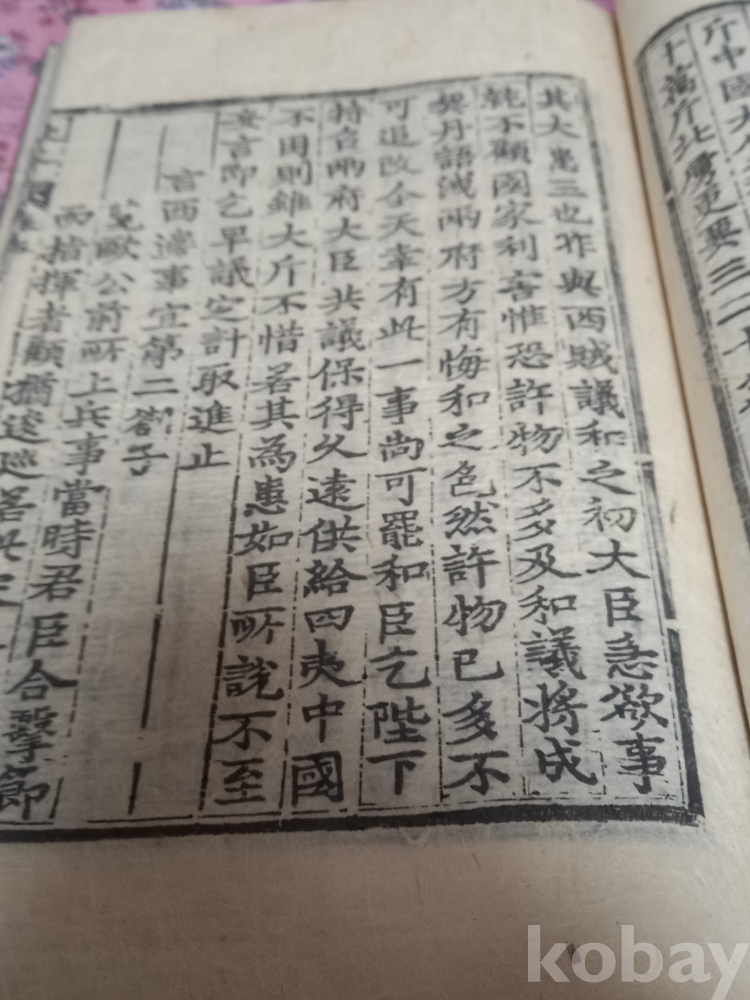 斤中國大
十萬斤北虜更要三二十
其大患三也昨與西賊議和之初大臣急欲事
就不顧國家利害惟恐許物不多及和議將成
契丹語洩兩府方有悔和之色然許物已多不
可追改今天幸有此一事尚可罷和臣乞陛下
特召兩府大臣共議保得久遠供給四夷中國
不困則雖大斤不惜若其為患如臣所說不至
妄言即乞早議定計取進止
言西邊事宜第二劄子
覽歐公前所上兵事當時君臣合擊節
而指揮者顧猶逡巡若
kobay